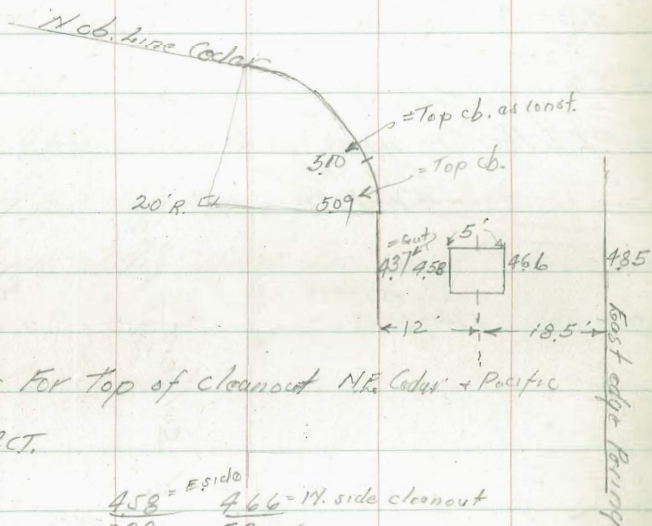 N cb. Line Cedar
=Top cb. as const.
5.10
=Top cb.
20' R.
5.09
=Gut
5'
4.37 4.58
4.66
4.85
12'
18.5'
East edge Paving
For Top of cleanout N.E. Cedar + Pacific
CT.
4.58 = E side 4.66 = N. side cleanout